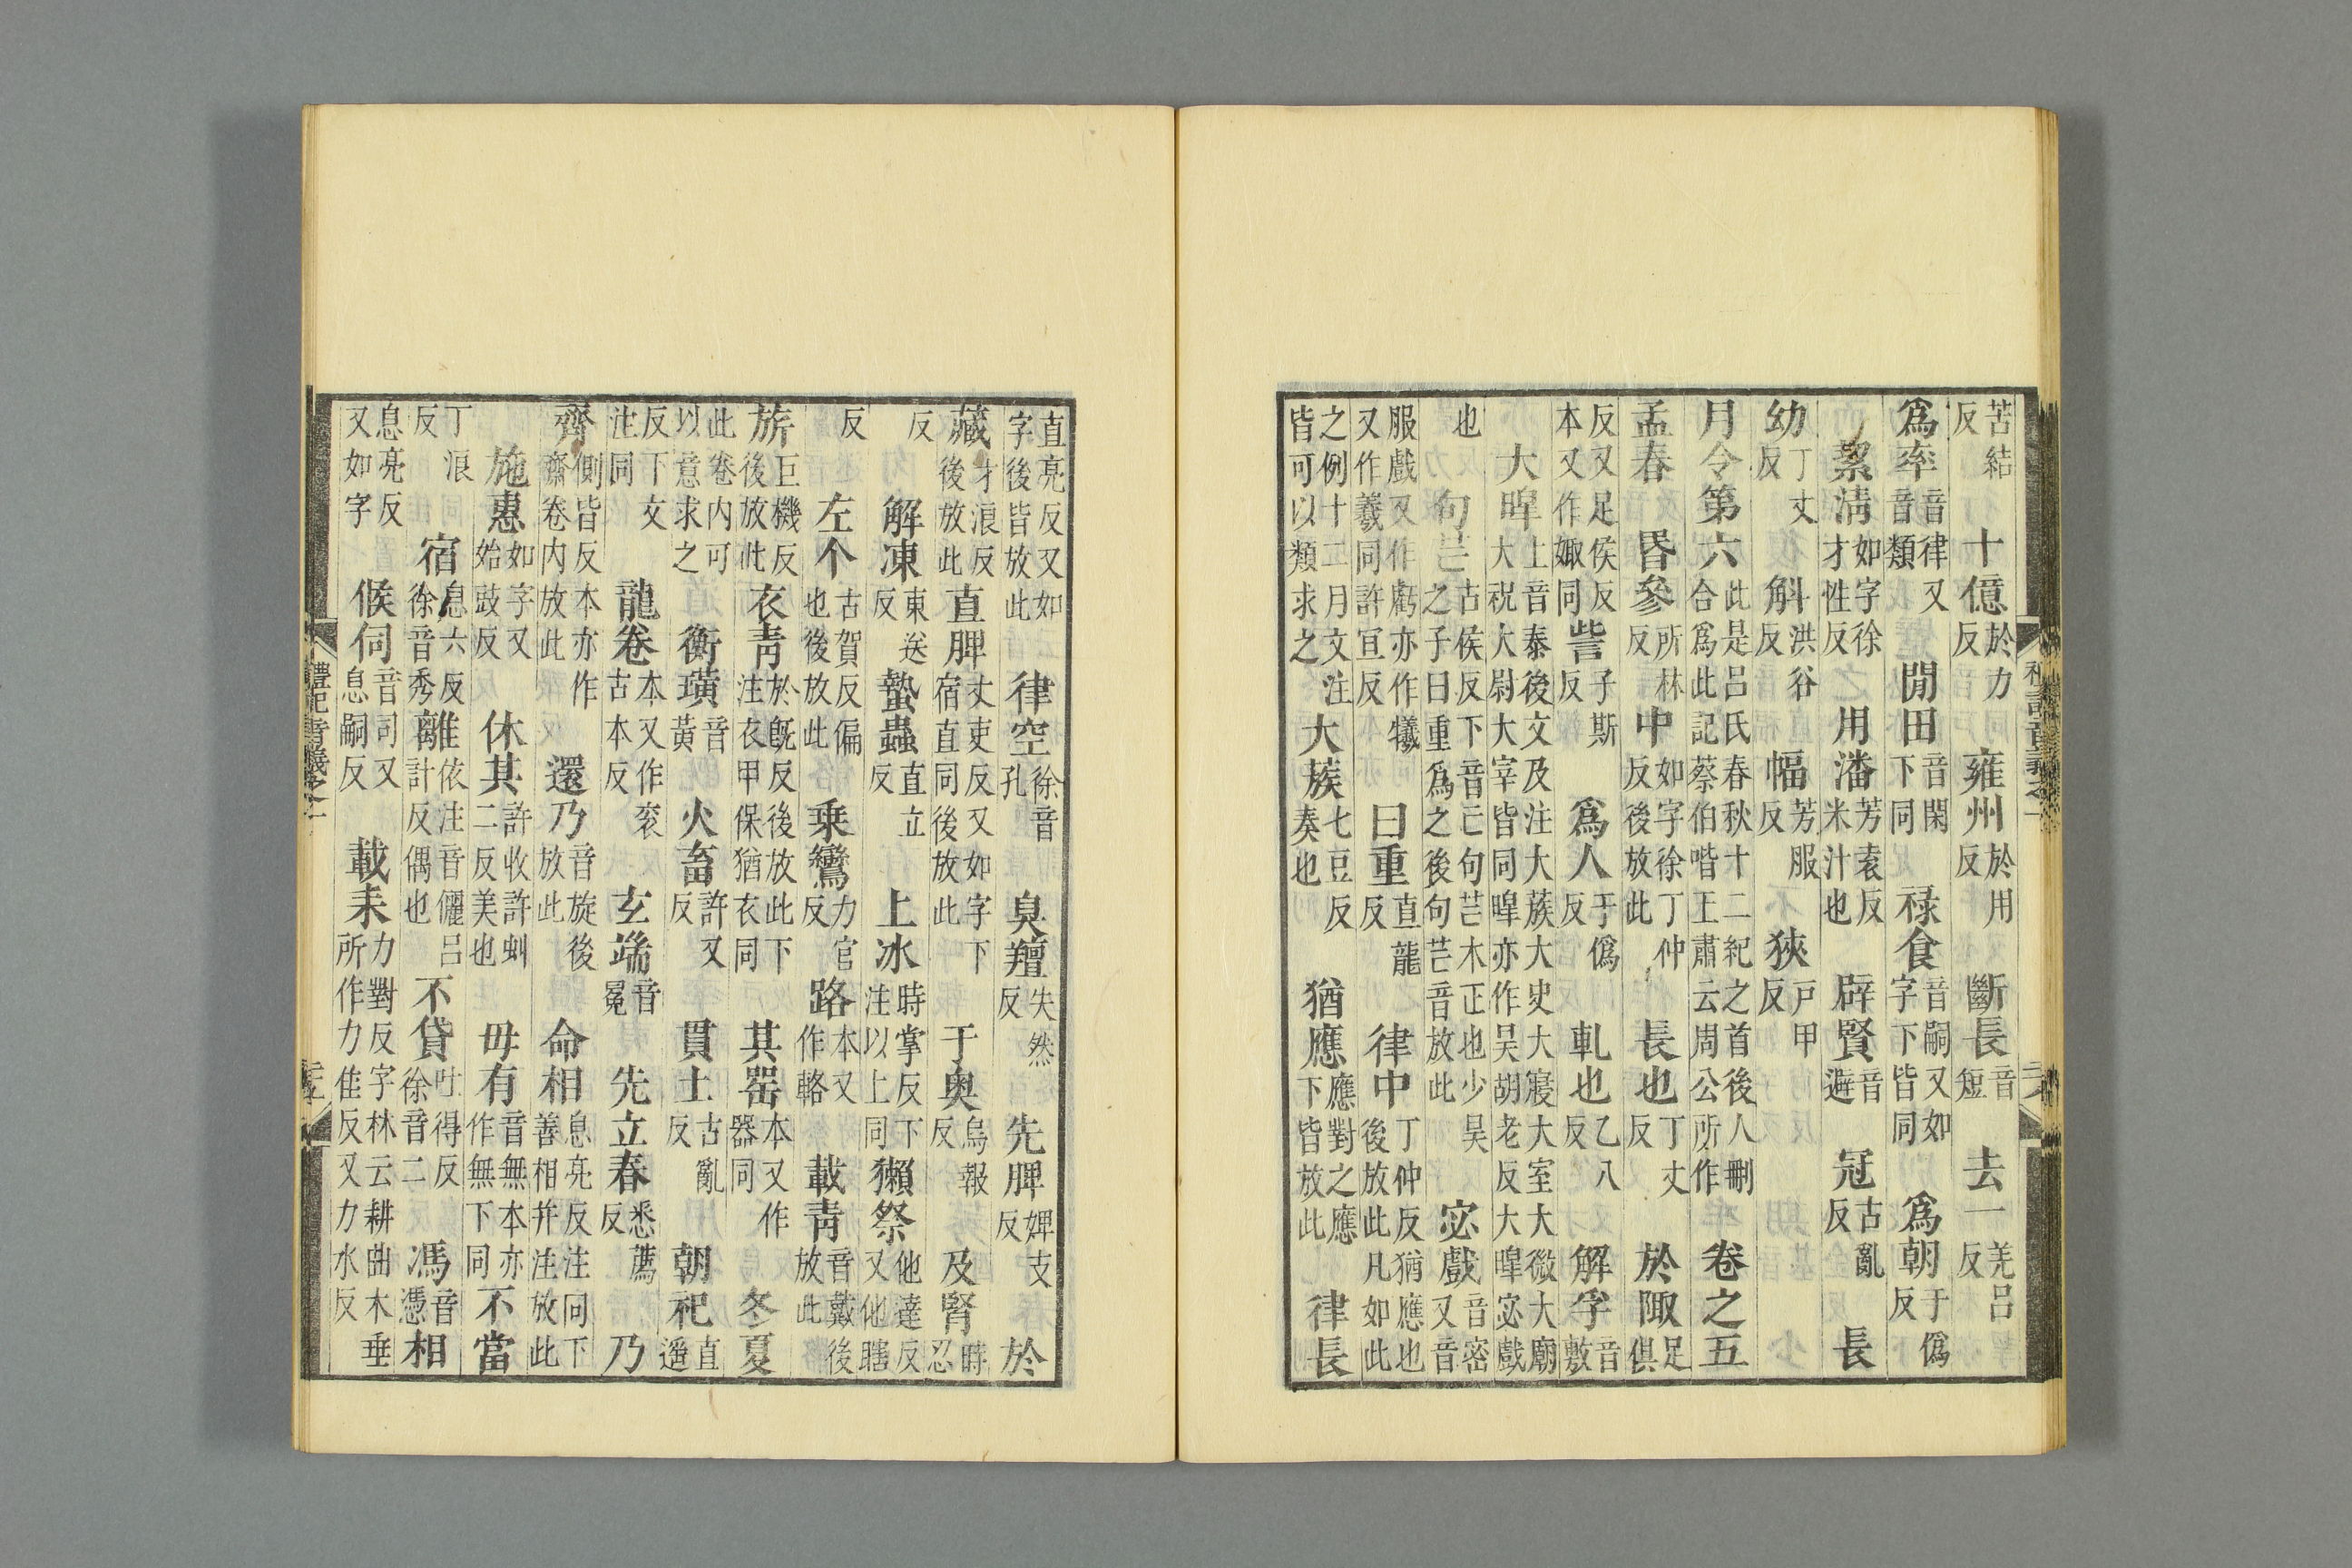 苦結反　十億於力反　雍州於用反　斷長音短　去一羌呂反
爲率音律又音類　閒田音閑下同　禄食音嗣又如字下皆同　爲朝于僞反
絜淸如字徐才性反　用潘芳袁反米汁也　辟賢音避　冠古亂反　長
幼丁丈反　斛洪谷反　幅芳服反　狹戸甲反
月令第六此是呂氏春秋十二紀之首後人刪合爲此記蔡伯喈王肅云周公所作　卷之五
孟春　昬參所林反　中如字徐丁仲反後放此　長也丁丈反　於陬足俱
反又足侯反本又作娵同　訾子斯反　爲人于僞反　軋也乙八反　解孚音敷
大皡上音泰後文及注大蔟大史大寢大室大微大廟大祝大尉大宰皆同皡亦作昊胡老反大皡宓戲
也　句芒古侯反下音亡句芒木正也少昊之子曰重爲之後句芒音放此　宓戲音密又音
服戲又作虧亦作犧又作羲同許亘反　曰重直龍反　律中丁仲反猶應也後放此凡如此
之例十二月文注皆可以類求之　大蔟七豆反奏也　猶應應對之應下皆放此　律長
直亮反又如字後皆放此　律空徐音孔　臭羶失然反　先脾婢支反　於
藏才浪反後放此　直脾丈吏反又如字下宿直同後放此　于奥烏報反　及腎時忍
反　解凍東送反　蟄蟲直立反　上冰時掌反下注以上同　獺祭他達反又他瞎
反　左个古賀反偏也後放此　乗鸞力官反　路本又作輅　載靑音戴後放此
旂巨機反後放此　衣靑於旣反後放此下注衣甲保猶衣同　其噐本又作器同　冬夏
此卷内可以意求之　衡璜音黃　火畜許又反　貫土古亂反　朝祀直遥
反下文注同　龍卷本又作衮古本反　玄端音冕　先立春悉薦反　乃
齊側皆反本亦作齋卷内放此　還乃音旋後放此　命相息亮反注同下善相幷注放此
施惠如字又始豉反　休其許收許虯二反美也　毋有音無本亦作無下同　不當
丁浪反　宿息六反徐音秀　離依注音儷呂計反偶也　不貸吐得反徐音二　馮音憑　相
息亮反又如字　候伺音司又息嗣反　載耒力對反字林云耕曲木垂所作力隹反又力水反
禮記音義之一